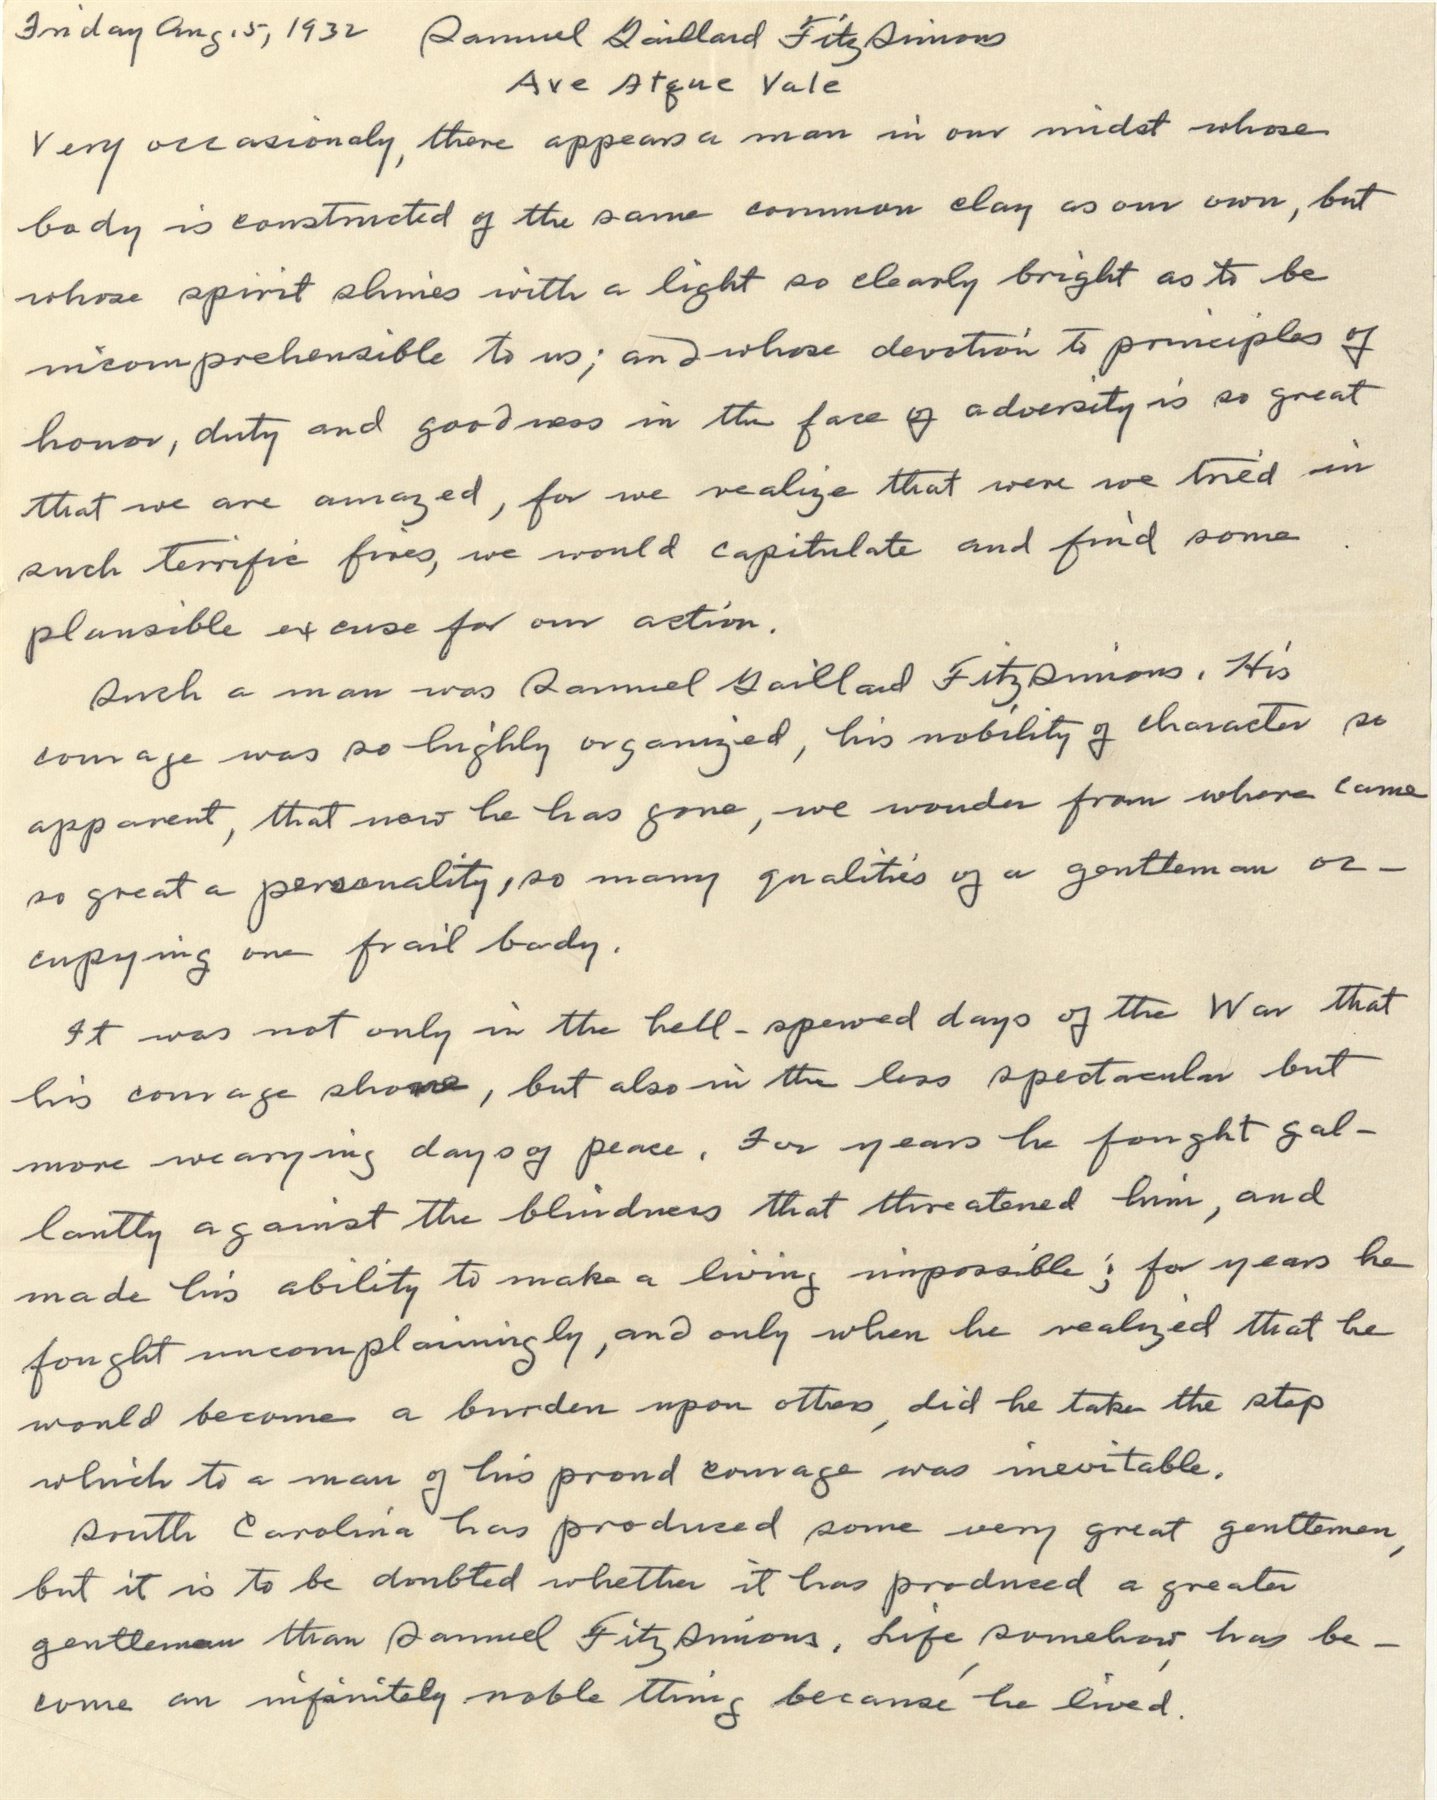 Friday Aug. 5, 1932 Samuel Gaillard FitzSimons
Ave Atque Vale
Very occasionaly, there appears a man in our midst whose
body is constructed of the same common clay as our own, but
whose spirit shines with a light so clearly bright as to be
incomprehensible to us; and whose devotion to principles of
honor, duty and goodness in the face of adversity is so great
that we are amazed, for we realize that were we tried in
such terrific fires, we would capitulate and find some
plausible excuse for our action.
Such a man was Samuel Gaillard FitzSimons. His
courage was so highly organized, his nobility of character so
apparent, that now he has gone, we wonder from where came
so great a personality, so many qualities of a gentleman oc-
cupying one frail body.
It was not only in the hell-spewed days of the War that
his courage shone, but also in the less spectacular but
more wearying days of peace. For years he fought gal-
lantly against the blindness that threatened him, and
made his ability to make a living impossible; for years he
fought uncomplainingly, and only when he realized that he
would become a burden upon others, did he take the step
which to a man of his proud courage was inevitable.
South Carolina has produced some very great gentlemen,
but it is to be doubted whether it has produced a greater
gentleman than Samuel FitzSimons. Life, somehow, has be-
come an infinitely noble thing because he lived.